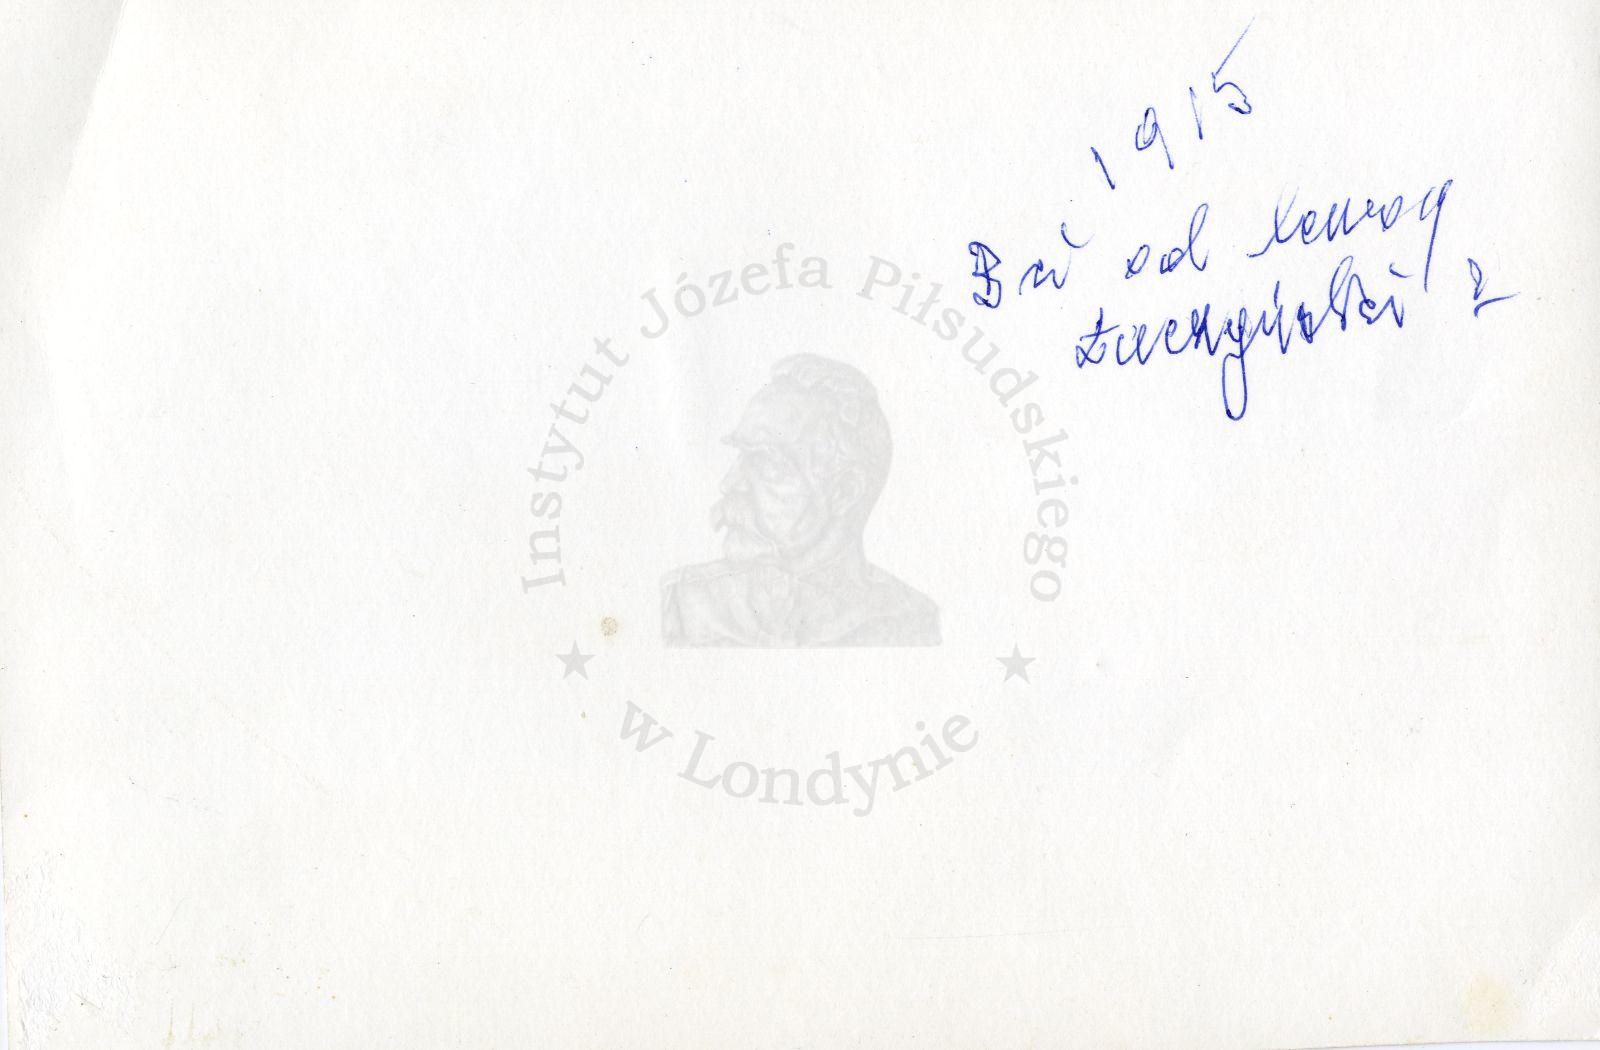 1915
3 ci od lewej
Łuczyński ?
Instytut Józefa Piłsudskiego
w Londynie